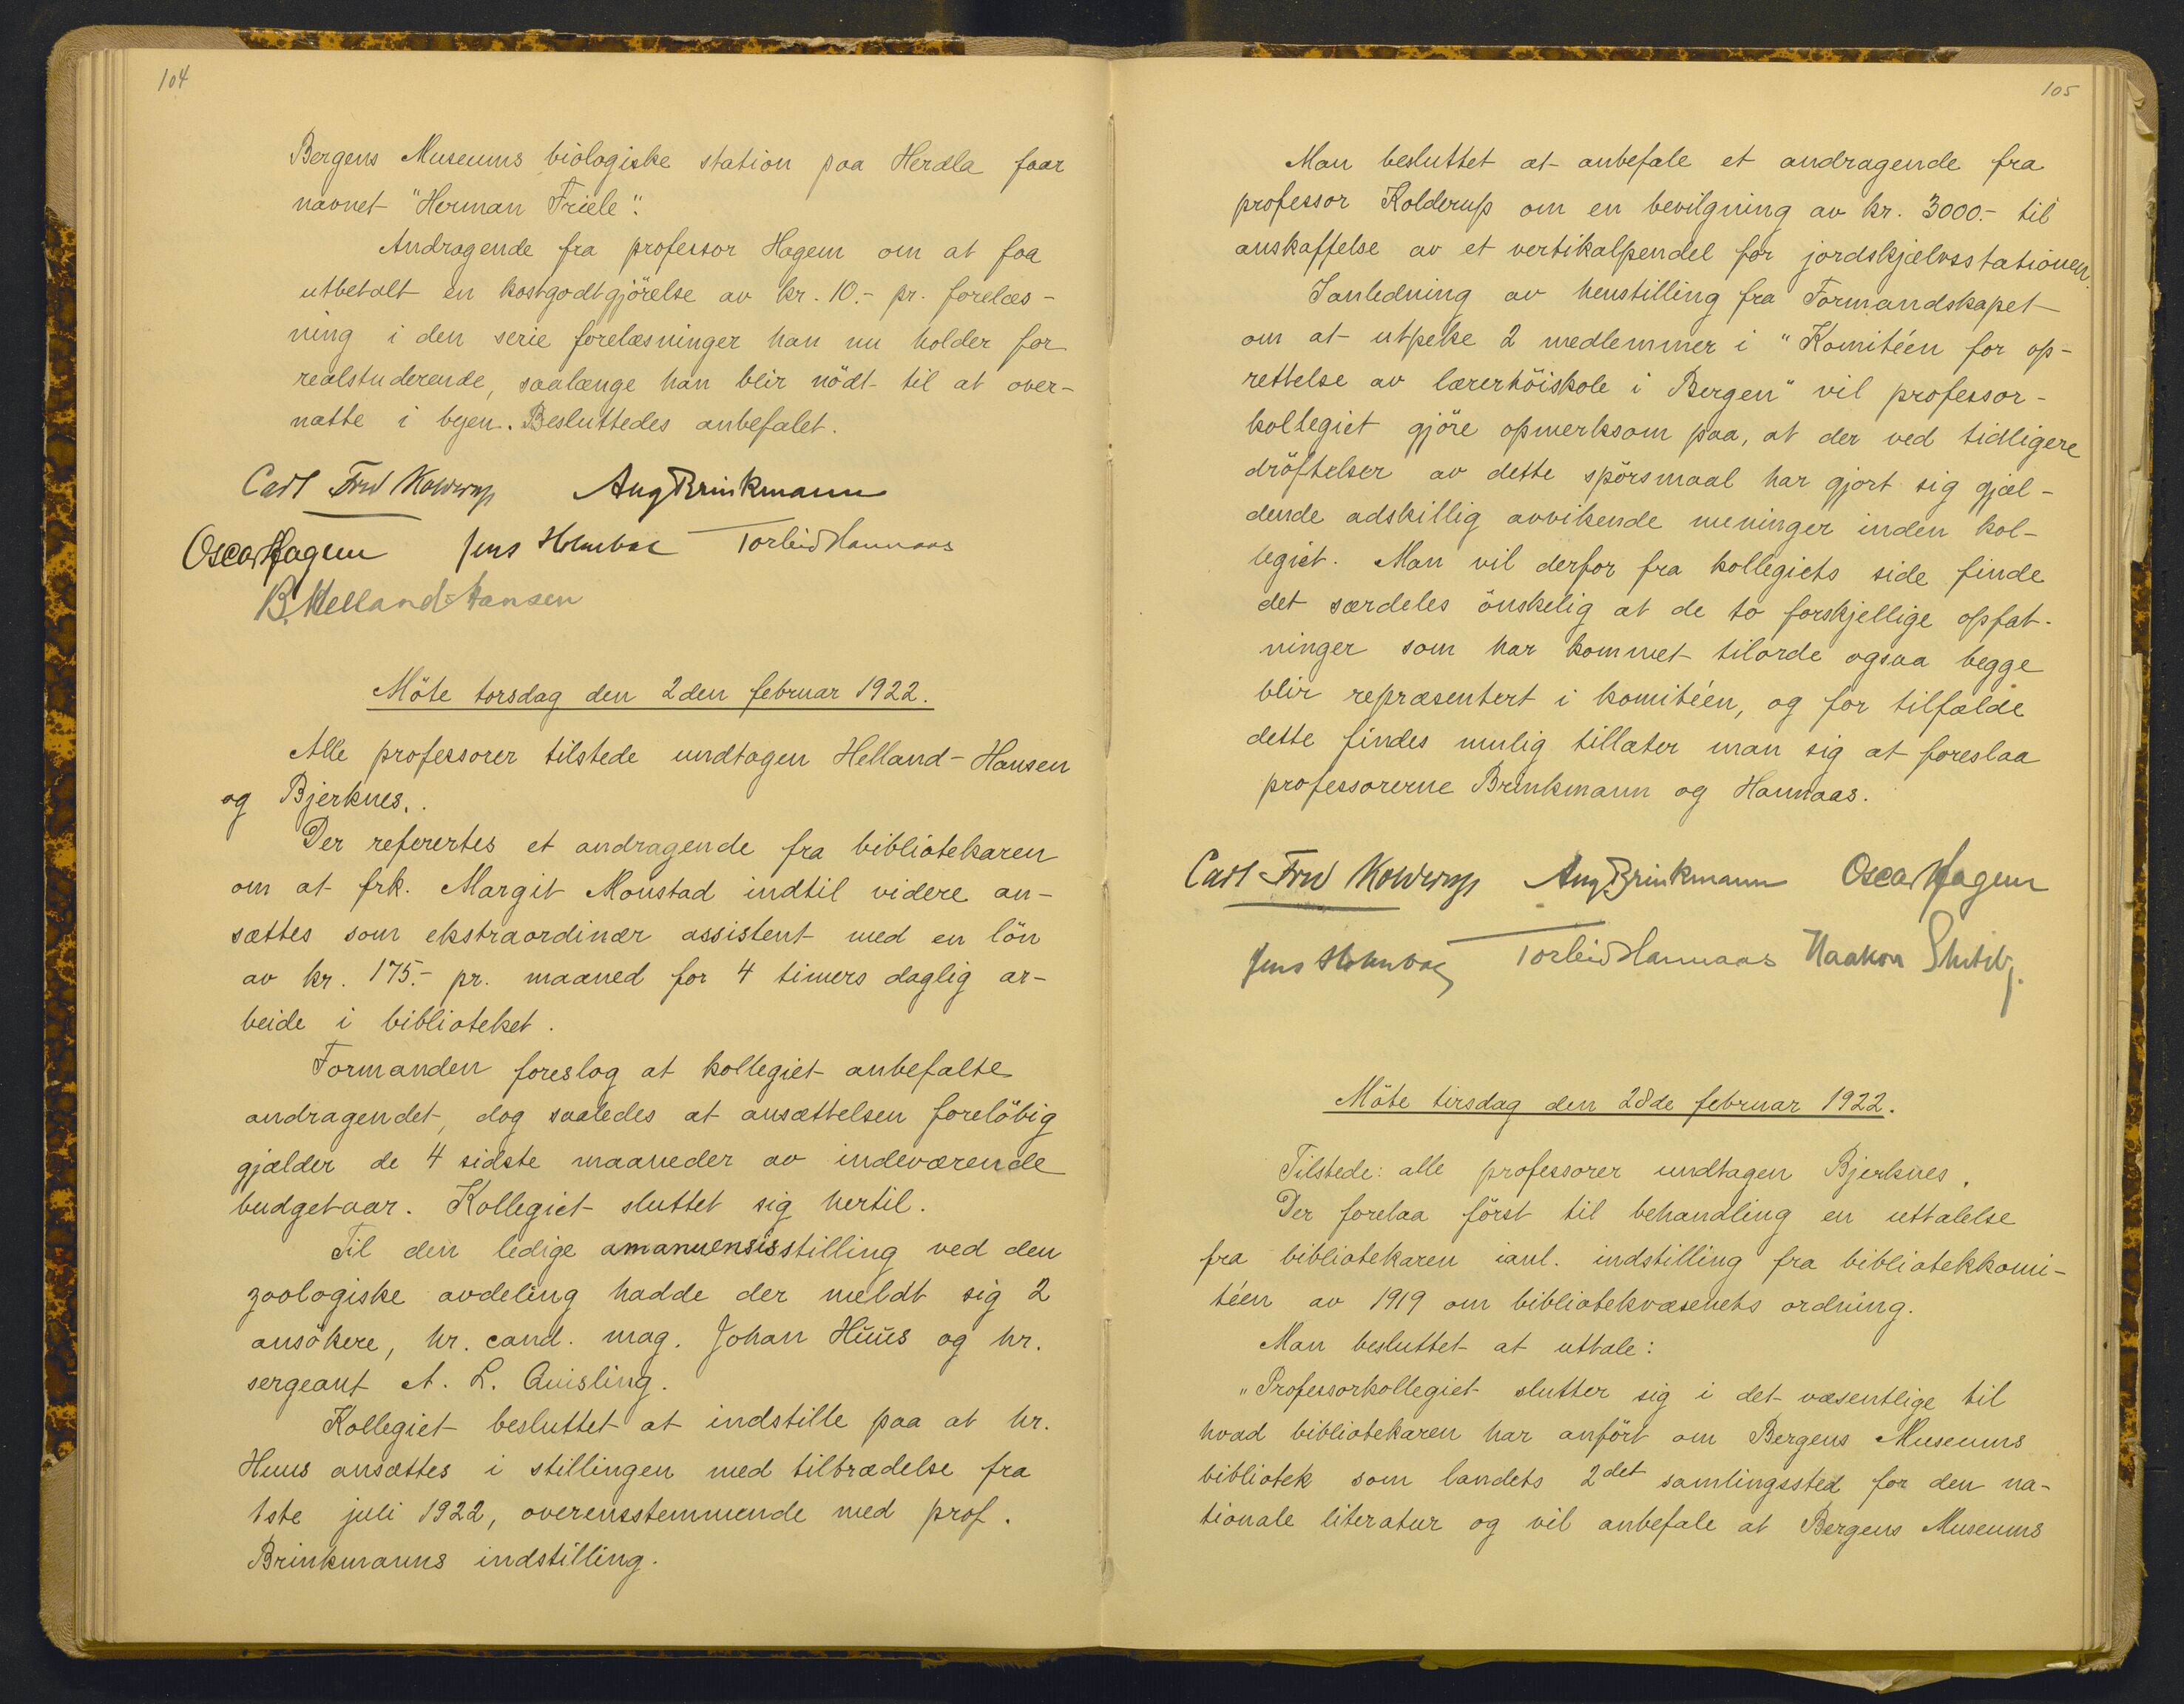 104
Bergens Museums biologiske station paa Herdla faar
navnet "Herman Friele".
Andragende fra professor Hagem om at faa
utbetalt en kostgodtgjörelse av kr. 10.- pr. forelæs-
ning i den serie forelæsninger han nu holder for
realstuderende, saalænge han blir nödt til at over-
natte i byen. Besluttedes anbefalet.
Carl Fred Kolderup Aug Brinkmann
Oscar Hagem Jens Holmboe Torleiv Hannaas
B. Helland-Hansen
Möte torsdag den 2den februar 1922.
Alle professorer tilstede undtagen Helland-Hansen
og Bjerknes.
Der referertes et andragende fra bibliotekaren
om at frk. Margit Monstad indtil videre an-
sættes som ekstraordinær assistent med en lön
av kr. 175.- pr. maaned for 4 timers daglig ar-
beide i biblioteket.
Formanden foreslog at kollegiet anbefalte
andragendet, dog saaledes at ansættelsen forelöbig
gjælder de 4 sidste maaneder av indeværende
budgetaar. Kollegiet sluttet sig hertil.
Til den ledige amanuensisstilling ved den
zoologiske avdeling hadde der meldt sig 2
ansökere, hr. cand. mag. Johan Huus og hr.
sergeant A. L. Quisling.
Kollegiet besluttet at indstille paa at hr.
Huus ansættes i stillingen med tiltrædelse fra
1ste juli 1922, overensstemmende med prof.
Brinkmanns indstilling.
105
Man besluttet at anbefale et andragende fra
professor Kolderup om en bevilgning av kr. 3000.- til
anskaffelse av et vertikalpendel for jordskjælvsstationen.
I anledning av henstilling fra Formandskapet
om at utpeke 2 medlemmer i "Komitéen for op-
rettelse av lærerhöiskole i Bergen" vil professor-
kollegiet gjöre opmerksom paa, at der ved tidligere
dröftelser av dette spörsmaal har gjort sig gjæl-
dende adskillig avvikende meninger inden kol-
legiet. Man vil derfor fra kollegiets side finde
det særdeles önskelig at de to forskjellige opfat-
ninger som har kommet tilorde ogsaa begge
blir repræsentert i komitéen, og for tilfælde
dette findes mulig tillater man sig at foreslaa
professorerne Brinkmann og Hannaas.
Carl Fred Kolderup Aug Brinkmann Oscar Hagem
Jens Holmboe Torleiv Hannaas Haakon Shetelig.
Möte tirsdag den 28de februar 1922.
Tilstede: alle professorer undtagen Bjerknes.
Der forelaa först til behandling en uttalelse
fra bibliotekaren ianl. indstilling fra bibliotekkomi-
téen av 1919 om bibliotekvæsenets ordning.
Man besluttet at uttale:
"Professorkollegiet slutter sig i det væsentlige til
hvad bibliotekaren har anfört om Bergens Museums
bibliotek som landets 2det samlingssted for den na-
tionale literatur og vil anbefale at Bergens Museums